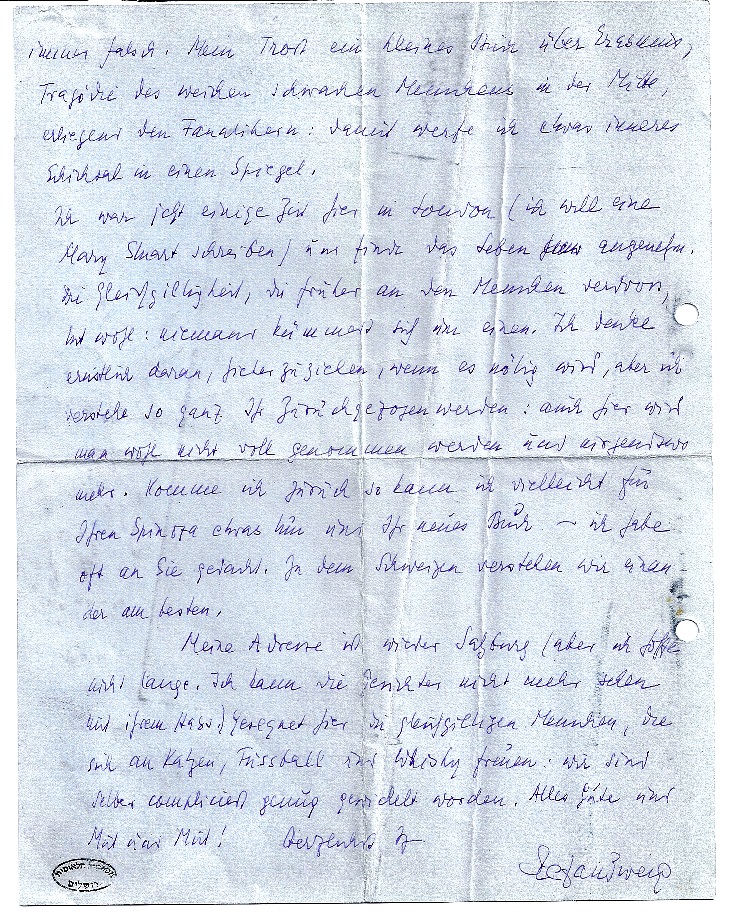 immer falsch. Mein Trost ein kleines Buch über Erasmus,
Tragödie des weichen schwachen Menschens in der Mitte,
erliegend den Fanatikern: damit werfe ich etwas inneres
Schicksal in einen Spiegel.
Ich war jetzt einige Zeit hier in London (ich will eine
Mary Stuart schreiben) und finde das Leben hier angenehm.
Die Gleichgiltigkeit, die früher an den Menschen verdross,
tut wohl: niemand kümmert sich um einen. Ich denke
ernstlich daran, hierherzuziehen, wenn es nötig wird, aber ich
verstehe so ganz Ihr Zurückgezogenwerden: auch hier wird
man wohl nicht voll genommen werden und nirgendswo
mehr. Komme ich zurück so kann ich vielleicht für
Ihren Spinoza etwas tun und Ihr neues Buch – ich habe
oft an Sie gedacht. In dem Schweigen verstehen wir einan-
der am besten.
Meine Adresse ist wieder Salzburg (aber ich hoffe
nicht lange. Ich kann die Gesichter nicht mehr sehen
mit ihrem Hass.) Gesegnet hier die gleichgiltigen Menschen, die
sich an Katzen, Fussball und Whisky freuen: wir sind
selber compliciert genug gewickelt worden. Alles Gute und
Mut und Mut! Herzlichst Ihr
Stefan Zweig
ירושלים